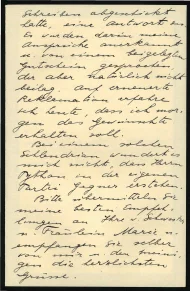 Schreiben abgeschickt
hatte, eine Antwort
es wurden darin meine
Ansprüche anerkannt
u. von einem beigelegten
Gutschein gesprochen
der aber natürlich nicht
beilag. Auf erneuerte
Reklamation erfahre
ich heute, dass ich mor-
gen das Gewünschte
erhalten soll.
Bei einem solchen
Schlendrian wundert es
mich nicht, dass Herrn
Python in der eigenen
Partei Gegner erstehen.
Bitte übermitteln Sie
meine besten Empfeh-
lungen an Ihre
u. Fräulein Marie u.
empfangen Sie selber
von mir u. den Meini-
gen die herzlichsten
Grüsse.